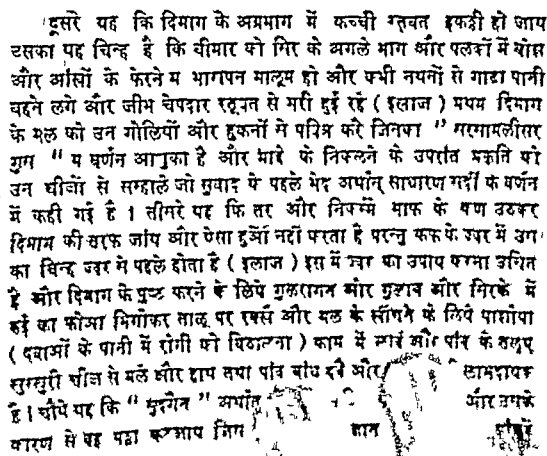 दूसरे यह कि दिमाग के अग्रभाग में कच्ची रतूबत इकट्ठी हो जाय
उसका यह चिन्ह है कि बीमार को सिर के अगले भाग और पलकों में बोझ
और आंखों के फेरने में भारापन मालूम हो और कभी नथनों से गाढा पानी
बहने लगे और जीभ चेपदार रतूबत से भरी हुई रहे ( इलाज ) प्रथम दिमाग
के मल को उन गोलियों और हुकनों से पवित्र करे जिनका "
" में वर्णन आचुका है और मादे के निकलने के उपरांत प्रकृति को
उन चीजों से सम्हाले जो सुबाद के पहले भेद अर्थात् साधारण सर्दी के वर्णन
में कही गई है । तीसरे यह कि तर और निकम्मे भाफ के कण उठकर
दिमाग की तरफ जांय और ऐसा हुआ नहीं करता है परन्तु कफ के ज्वर में उस
का चिन्ह ज्वर से पहले होता है ( इलाज ) इस में ज्वर का उपाय करना उचित
है और दिमाग के पुष्ट करने के लिये गुलरोगन और गुलाब और सिरके में
रुई का फोआ भिगोकर तालू पर रक्खें और मल के खींचने के लिये पाशोया
( दवाओं के पानी में रोगी को बिठालना ) काम में लावें और पांव के तलुए
खुरखुरी चीज से मलें और हाथ तथा पांव बांध दें और लाभदायक
है । चौथे यह कि " " अर्थात् और उसके
कारण से वह